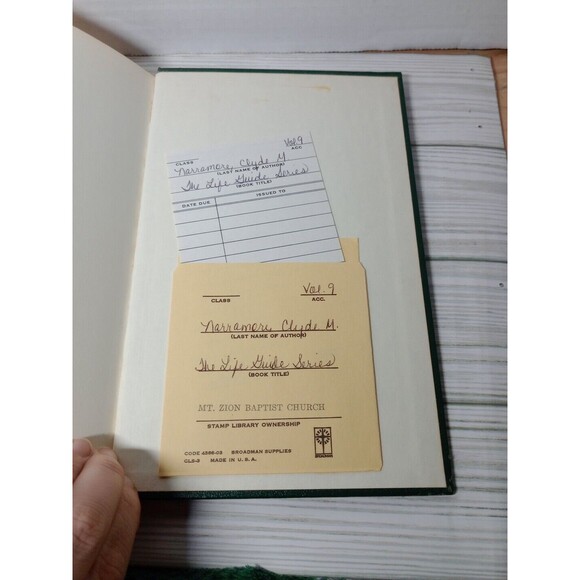 Vol. 9
CLASS ACC.
Narramore, Clyde M
(LAST NAME OF AUTHOR)
The Life Guide Series
(BOOK TITLE)
DATE DUE ISSUED TO
Vol. 9
CLASS ACC.
Narramore, Clyde M.
(LAST NAME OF AUTHOR)
The Life Guide Series
(BOOK TITLE)
MT. ZION BAPTIST CHURCH
STAMP LIBRARY OWNERSHIP
CODE 4386-03 BROADMAN SUPPLIES
CLS-3 MADE IN U.S.A.
BROADMAN